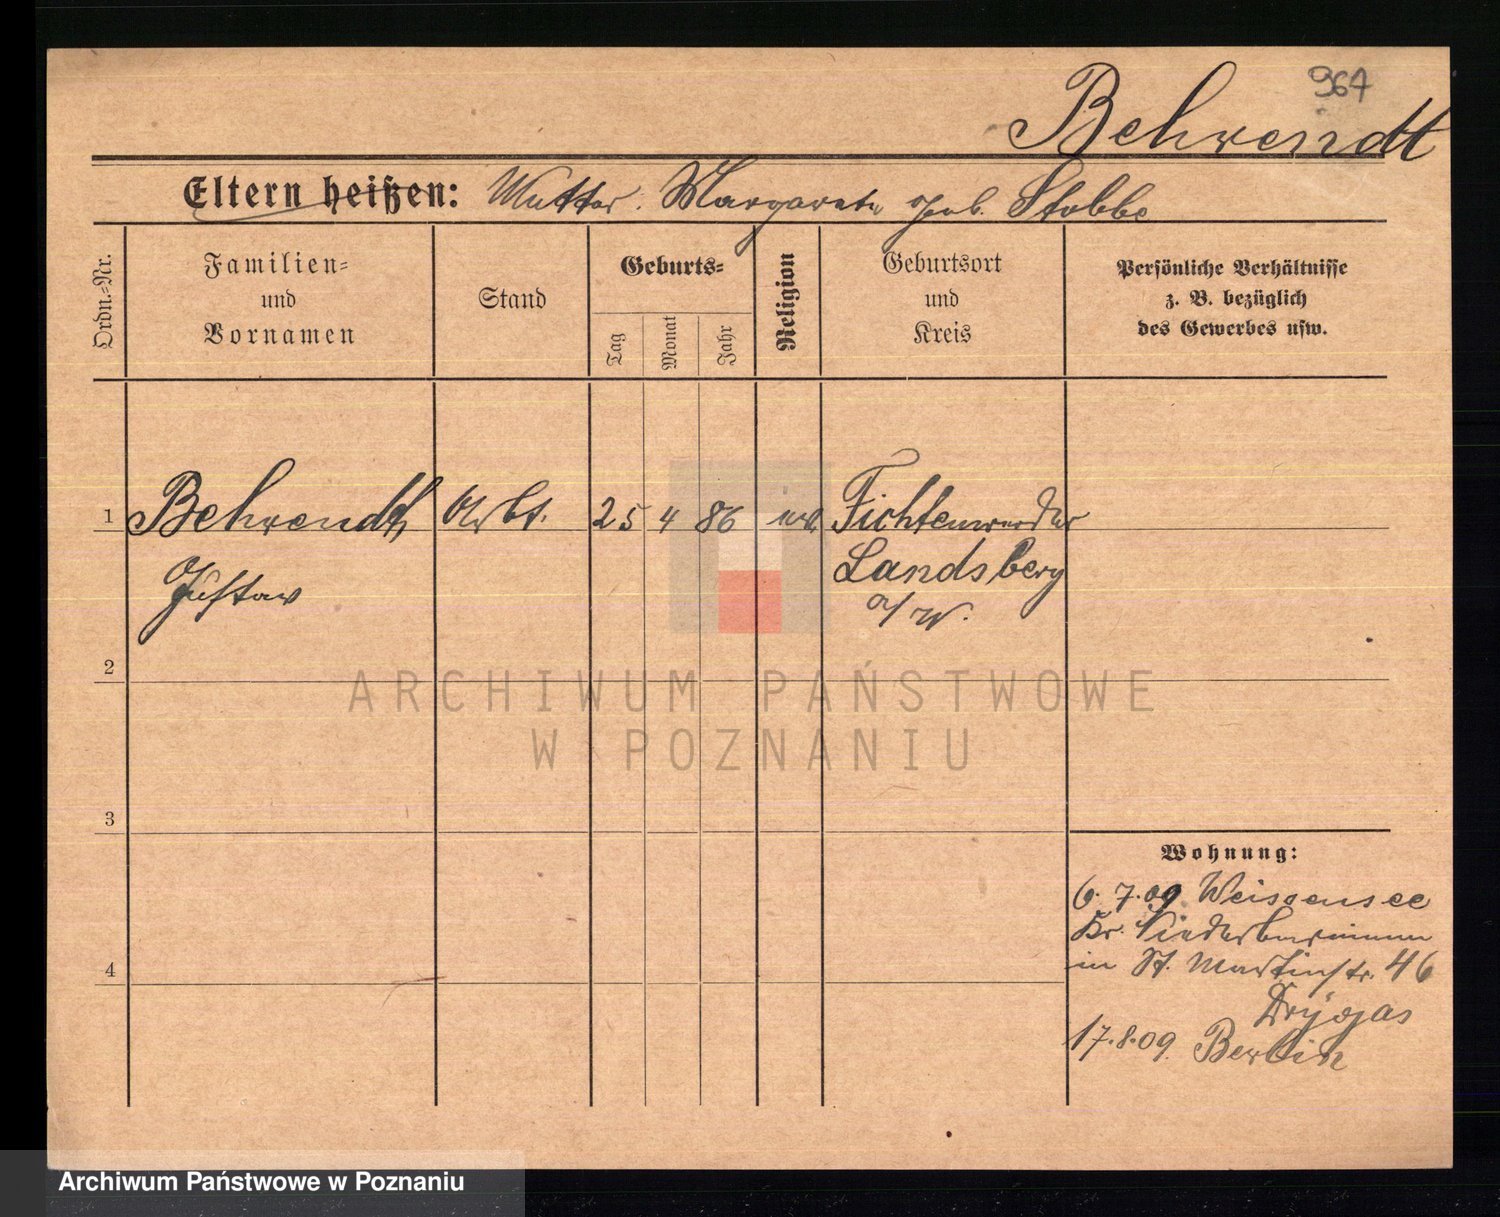 967
Behrendt
Eltern heißen: Mutter. Margarete geb. Stobbe
Ordn.=Nr.
Familien=
und
Vornamen
Stand
Geburts=
Tag
Monat
Jahr
Religion
Geburtsort
und
Kreis
Persönliche Verhältnisse
z. B. bezüglich
des Gewerbes usw.
1 Behrendt, Arbt. 25 4 86 Fichtenwerder
Gustav
Landsberg
a/W.
2
ARCHIWUM PAŃSTWOWE
W POZNANIU
3
Wohnung:
6.7.09 Weissensee
Kr. Niederbarnim
in St. Martinstr. 46
Drygas
4
17.8.09. Berlin
Archiwum Państwowe w Poznaniu